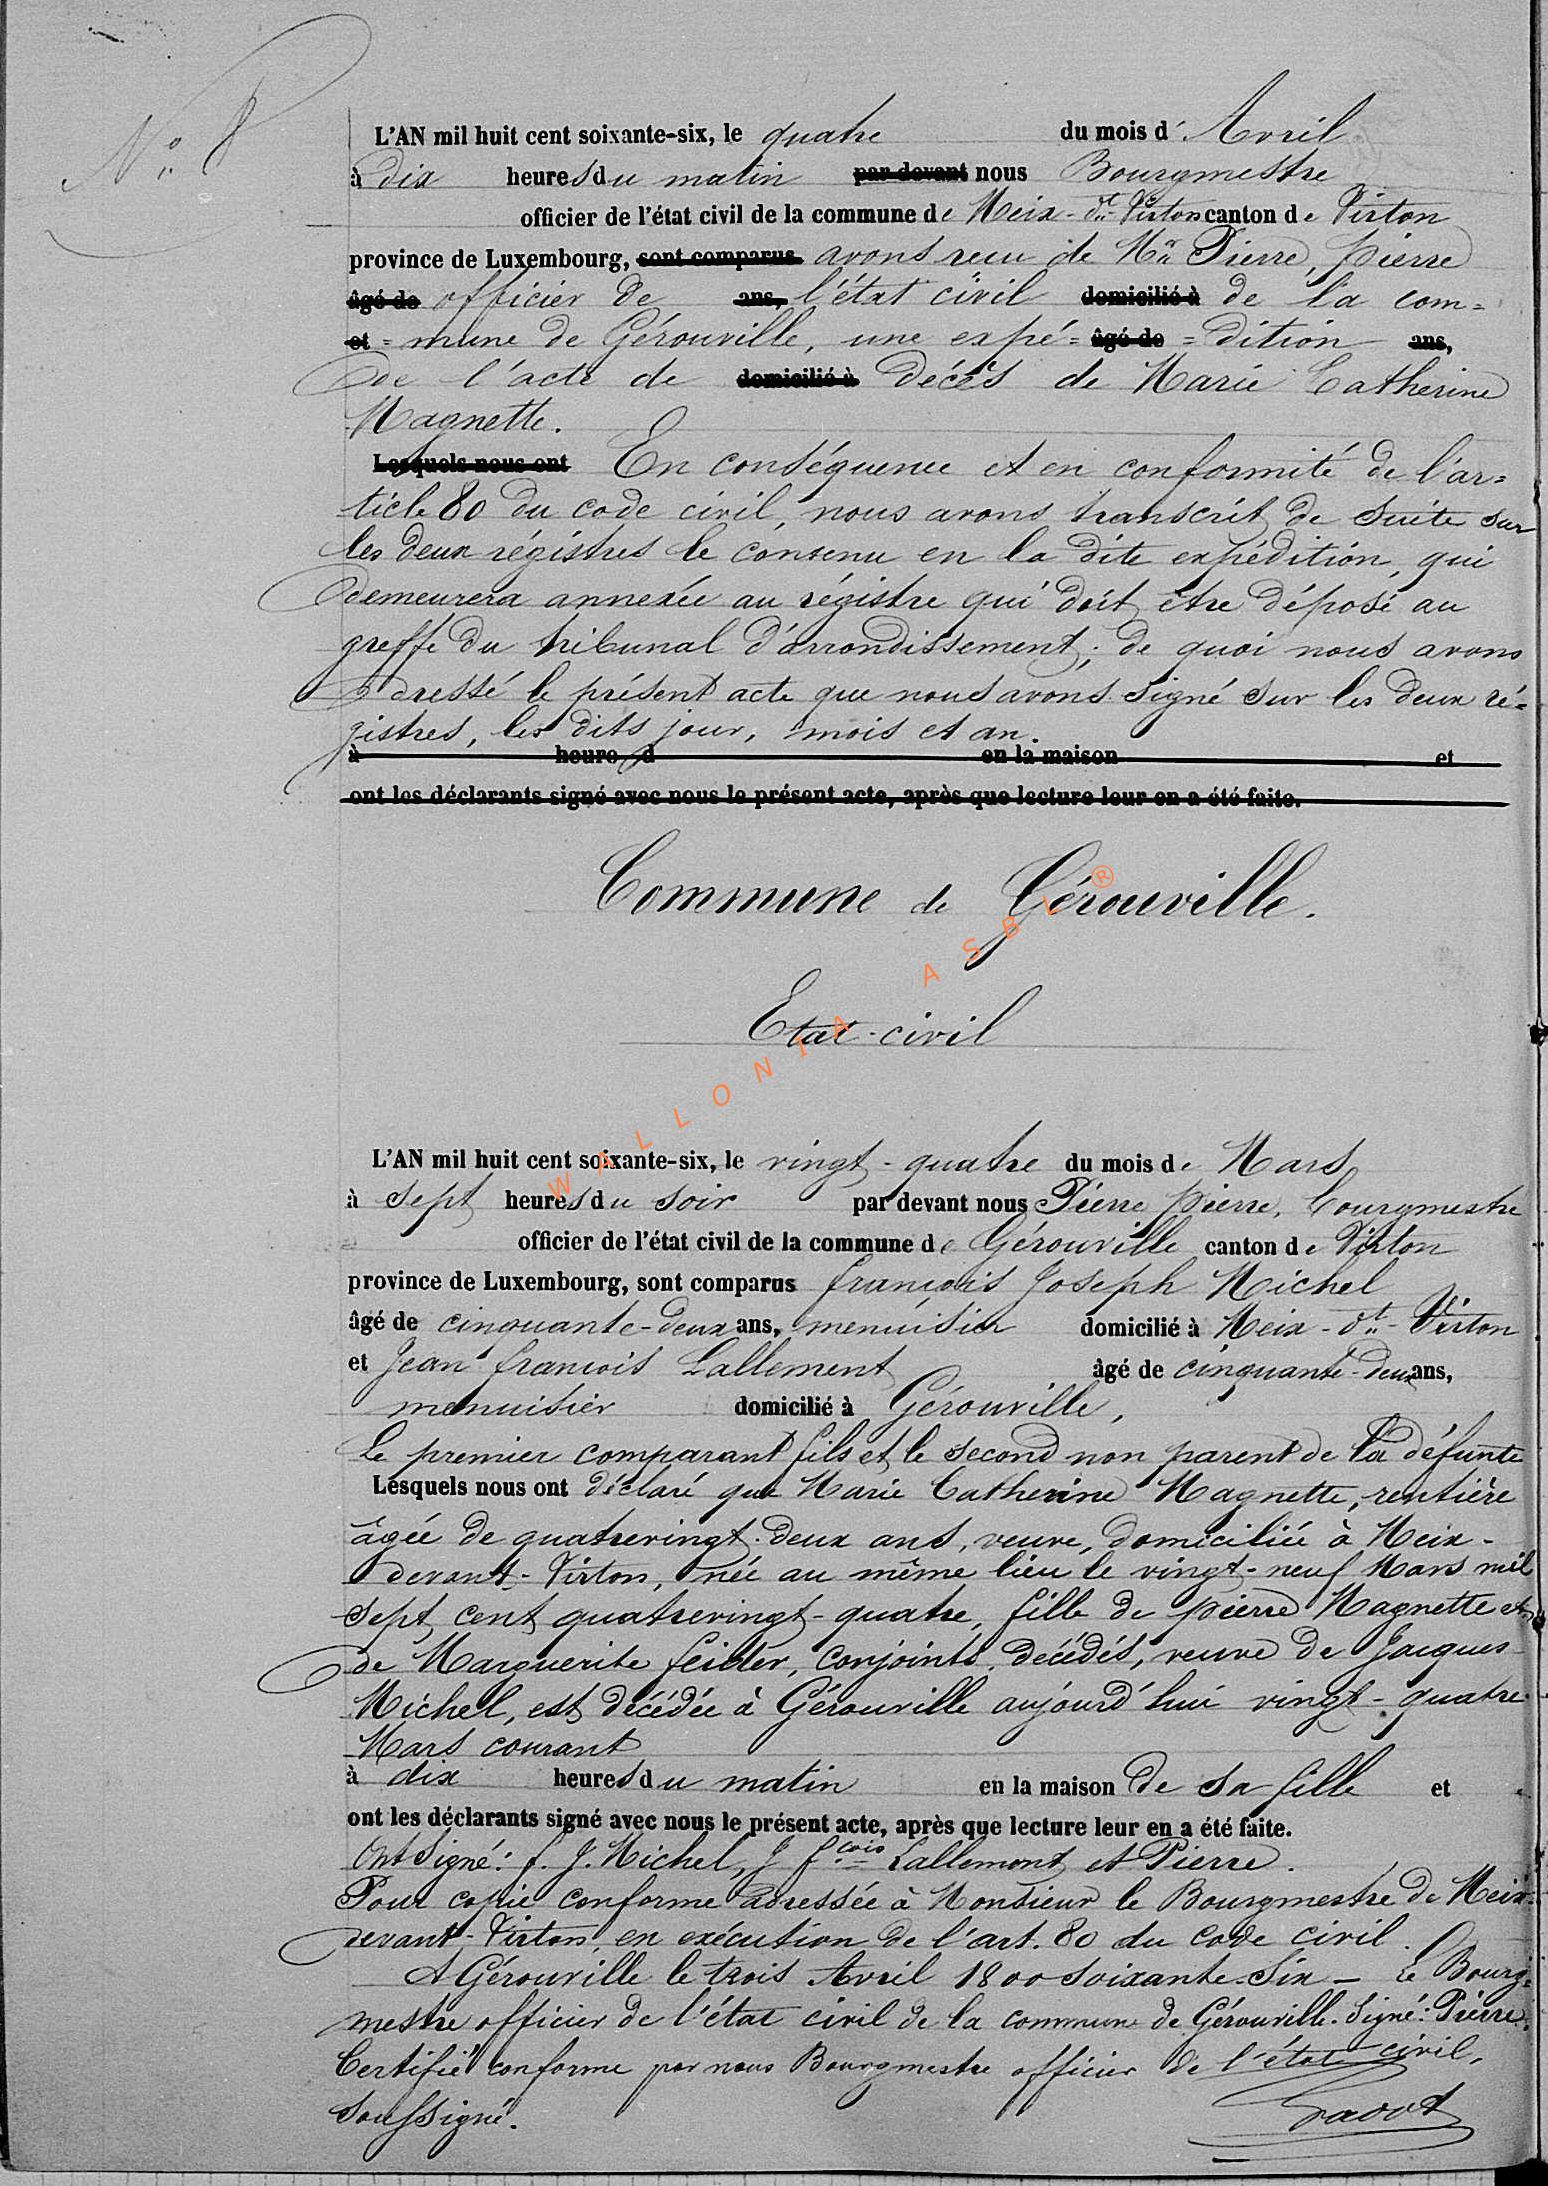 N° 8
L'AN mil huit cent soixante-six, le quatre du mois d'Avril
à dix heures du matin par devant nous Bourgmestre
officier de l'état civil de la commune de Meix-dt-Virton canton de Virton
province de Luxembourg, sont comparus avons recu de Mr Pierre, pierre
âgé de officier de ans, l'état civil domicilié à de la com=
et =mune de Gérouville, une expé= âgé de =dition ans,
de l'acte de domicilié à décès de Marie Catherine
Magnette.
Lesquels nous ont En conséquence et en conformité de l'ar=
ticle 80 du code civil, nous avons transcrit de suite sur
les deux régistres le contenu en la dite expédition, qui
demeurera annexée au régistre qui doit être déposé au
greffe du tribunal d'arrondissement; de quoi nous avons
dressé le présent acte que nous avons signé sur les deux ré=
gistres, les dits jour, mois et an.
à heure d en la maison et
ont les déclarants signé avec nous le présent acte, après que lecture leur en a été faite.
Commune de Gérouville.
Etat-civil
WALLONIA ASBL ®
L'AN mil huit cent soixante-six, le vingt-quatre du mois de Mars
à sept heures du soir par devant nous Pierre pierre, bourgmestre
officier de l'état civil de la commune de Gérouville canton de Virton
province de Luxembourg, sont comparus françois Joseph Michel
âgé de cinquante-deux ans, menuisier domicilié à Meix-dt-Virton
et Jean françois Lallement âgé de cinquante-deux ans,
menuisier domicilié à Gérouville,
Le premier comparant fils et le second non parent de la défunte
Lesquels nous ont déclaré que Marie Catherine Magnette, rentière
âgée de quatrevingt-deux ans, veuve, domiciliée à Meix-
devant-Virton, née au même lieu le vingt-neuf Mars mil
sept cent quatrevingt-quatre, fille de pierre Magnette et
de Marguerite feider, conjoints, décédés, veuve de Jacques
Michel, est décédée à Gérouville aujourd'hui vingt-quatre
Mars courant
à dix heures du matin en la maison de sa fille et
ont les déclarants signé avec nous le présent acte, après que lecture leur en a été faite.
Ont signé: f. J. Michel, J fcois Lallemont et Pierre.
Pour copie conforme adressée à Monsieur le Bourgmestre de Meix-
devant-Virton, en exécution de l'art. 80 du code civil.
A Gérouville le trois Avril 1800 soixante-six – Le Bourg=
mestre officier de l'état civil de la commune de Gérouville. Signé: Pierre.
Certifié conforme par nous Bourgmestre officier de l'état civil,
soussigné.